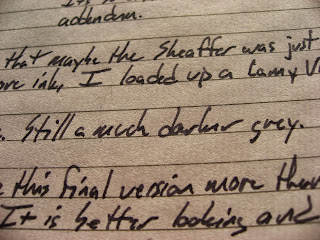 addendum.
that maybe the Sheaffer was just
ore ink, I loaded up a Lamy V
. Still a much darker grey.
this final version more than
It is better looking and